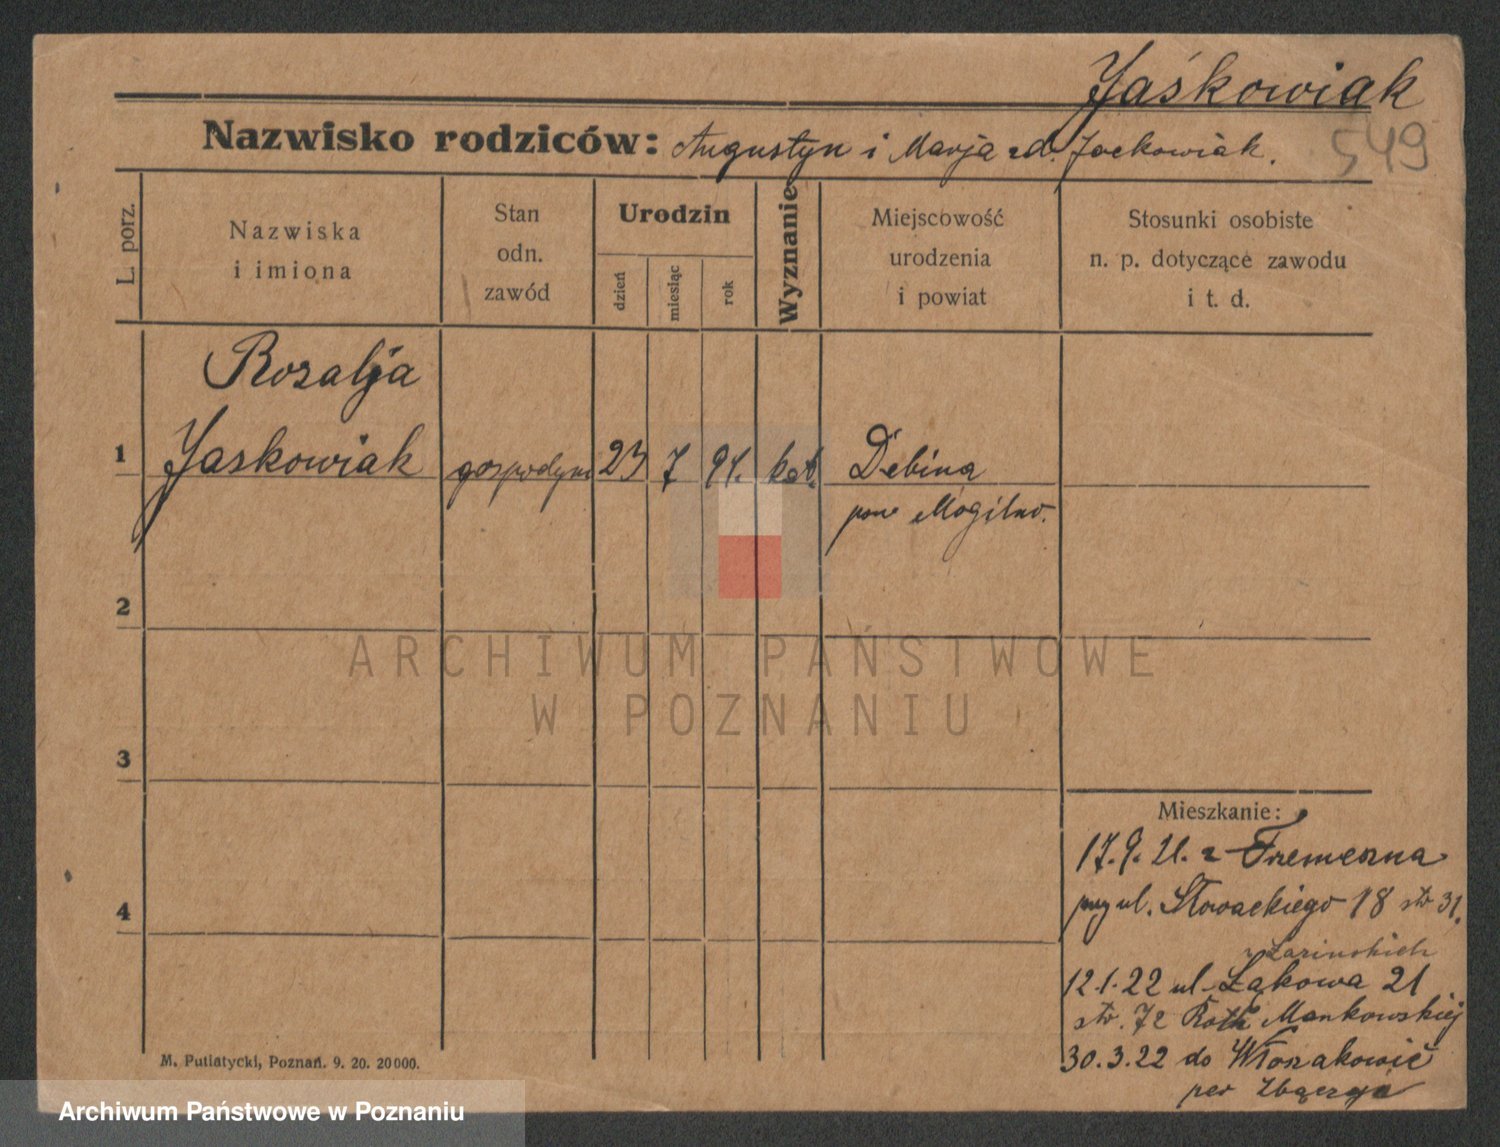 Jaśkowiak
549
Nazwisko rodziców: Augustyn i Marja zd. Jackowiak.
L. porz.
Nazwiska
i imiona
Stan
odn.
zawód
Urodzin
dzień
miesiąc
rok
Wyznanie
Miejscowość
urodzenia
i powiat
Stosunki osobiste
n. p. dotyczące zawodu
i t. d.
Rozalja
1 Jaskowiak gospodyni 23 7 91. kat. Dębina
pow Mogilno.
2
3
4
ARCHIWUM PAŃSTWOWE
W POZNANIU
Mieszkanie:
17.9.21. z Tremeszna
przy ul. Słowackiego 18 str 31.
12.1.22 ul. Łąkowa 21
str. 72 Mankowskiej
30.3.22 do Włoszakowic
M. Putiatycki, Poznań. 9. 20. 20000.
Archiwum Państwowe w Poznaniu